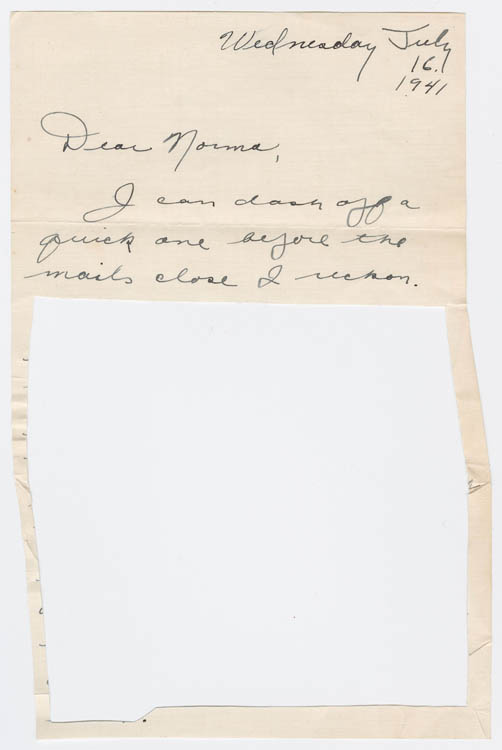 Wednesday July
16.
1941
Dear Norma,
I can dash off a
quick one before the
mails close I reckon.